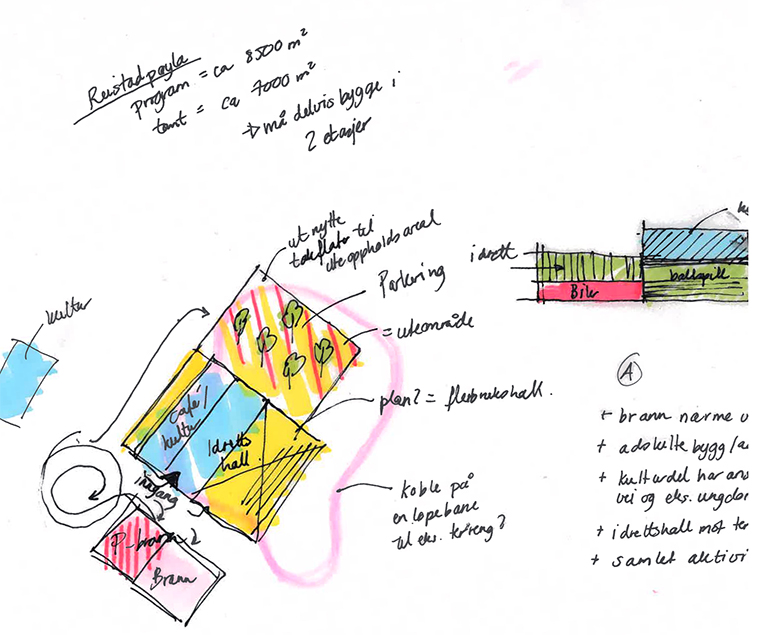 Ruistadpøyla
program = ca 8500 m²
tomt = ca 7000 m²
→ må delvis bygge i
2 etasjer
kultur
utnytte
takflater til
uteoppholdsareal
Parkering
= uteområde
plan 2 = flerbrukshall.
café/
kultur
Idretts
hall
inngang
P-brann
Brann
koble på
en løpebane
til eks. terreng?
idrett
Biler
ballspill
A
+ brann nærme
+ adskilte bygg/
+ kulturdel har
vei og eks.
+ idrettshall mot
+ samlet